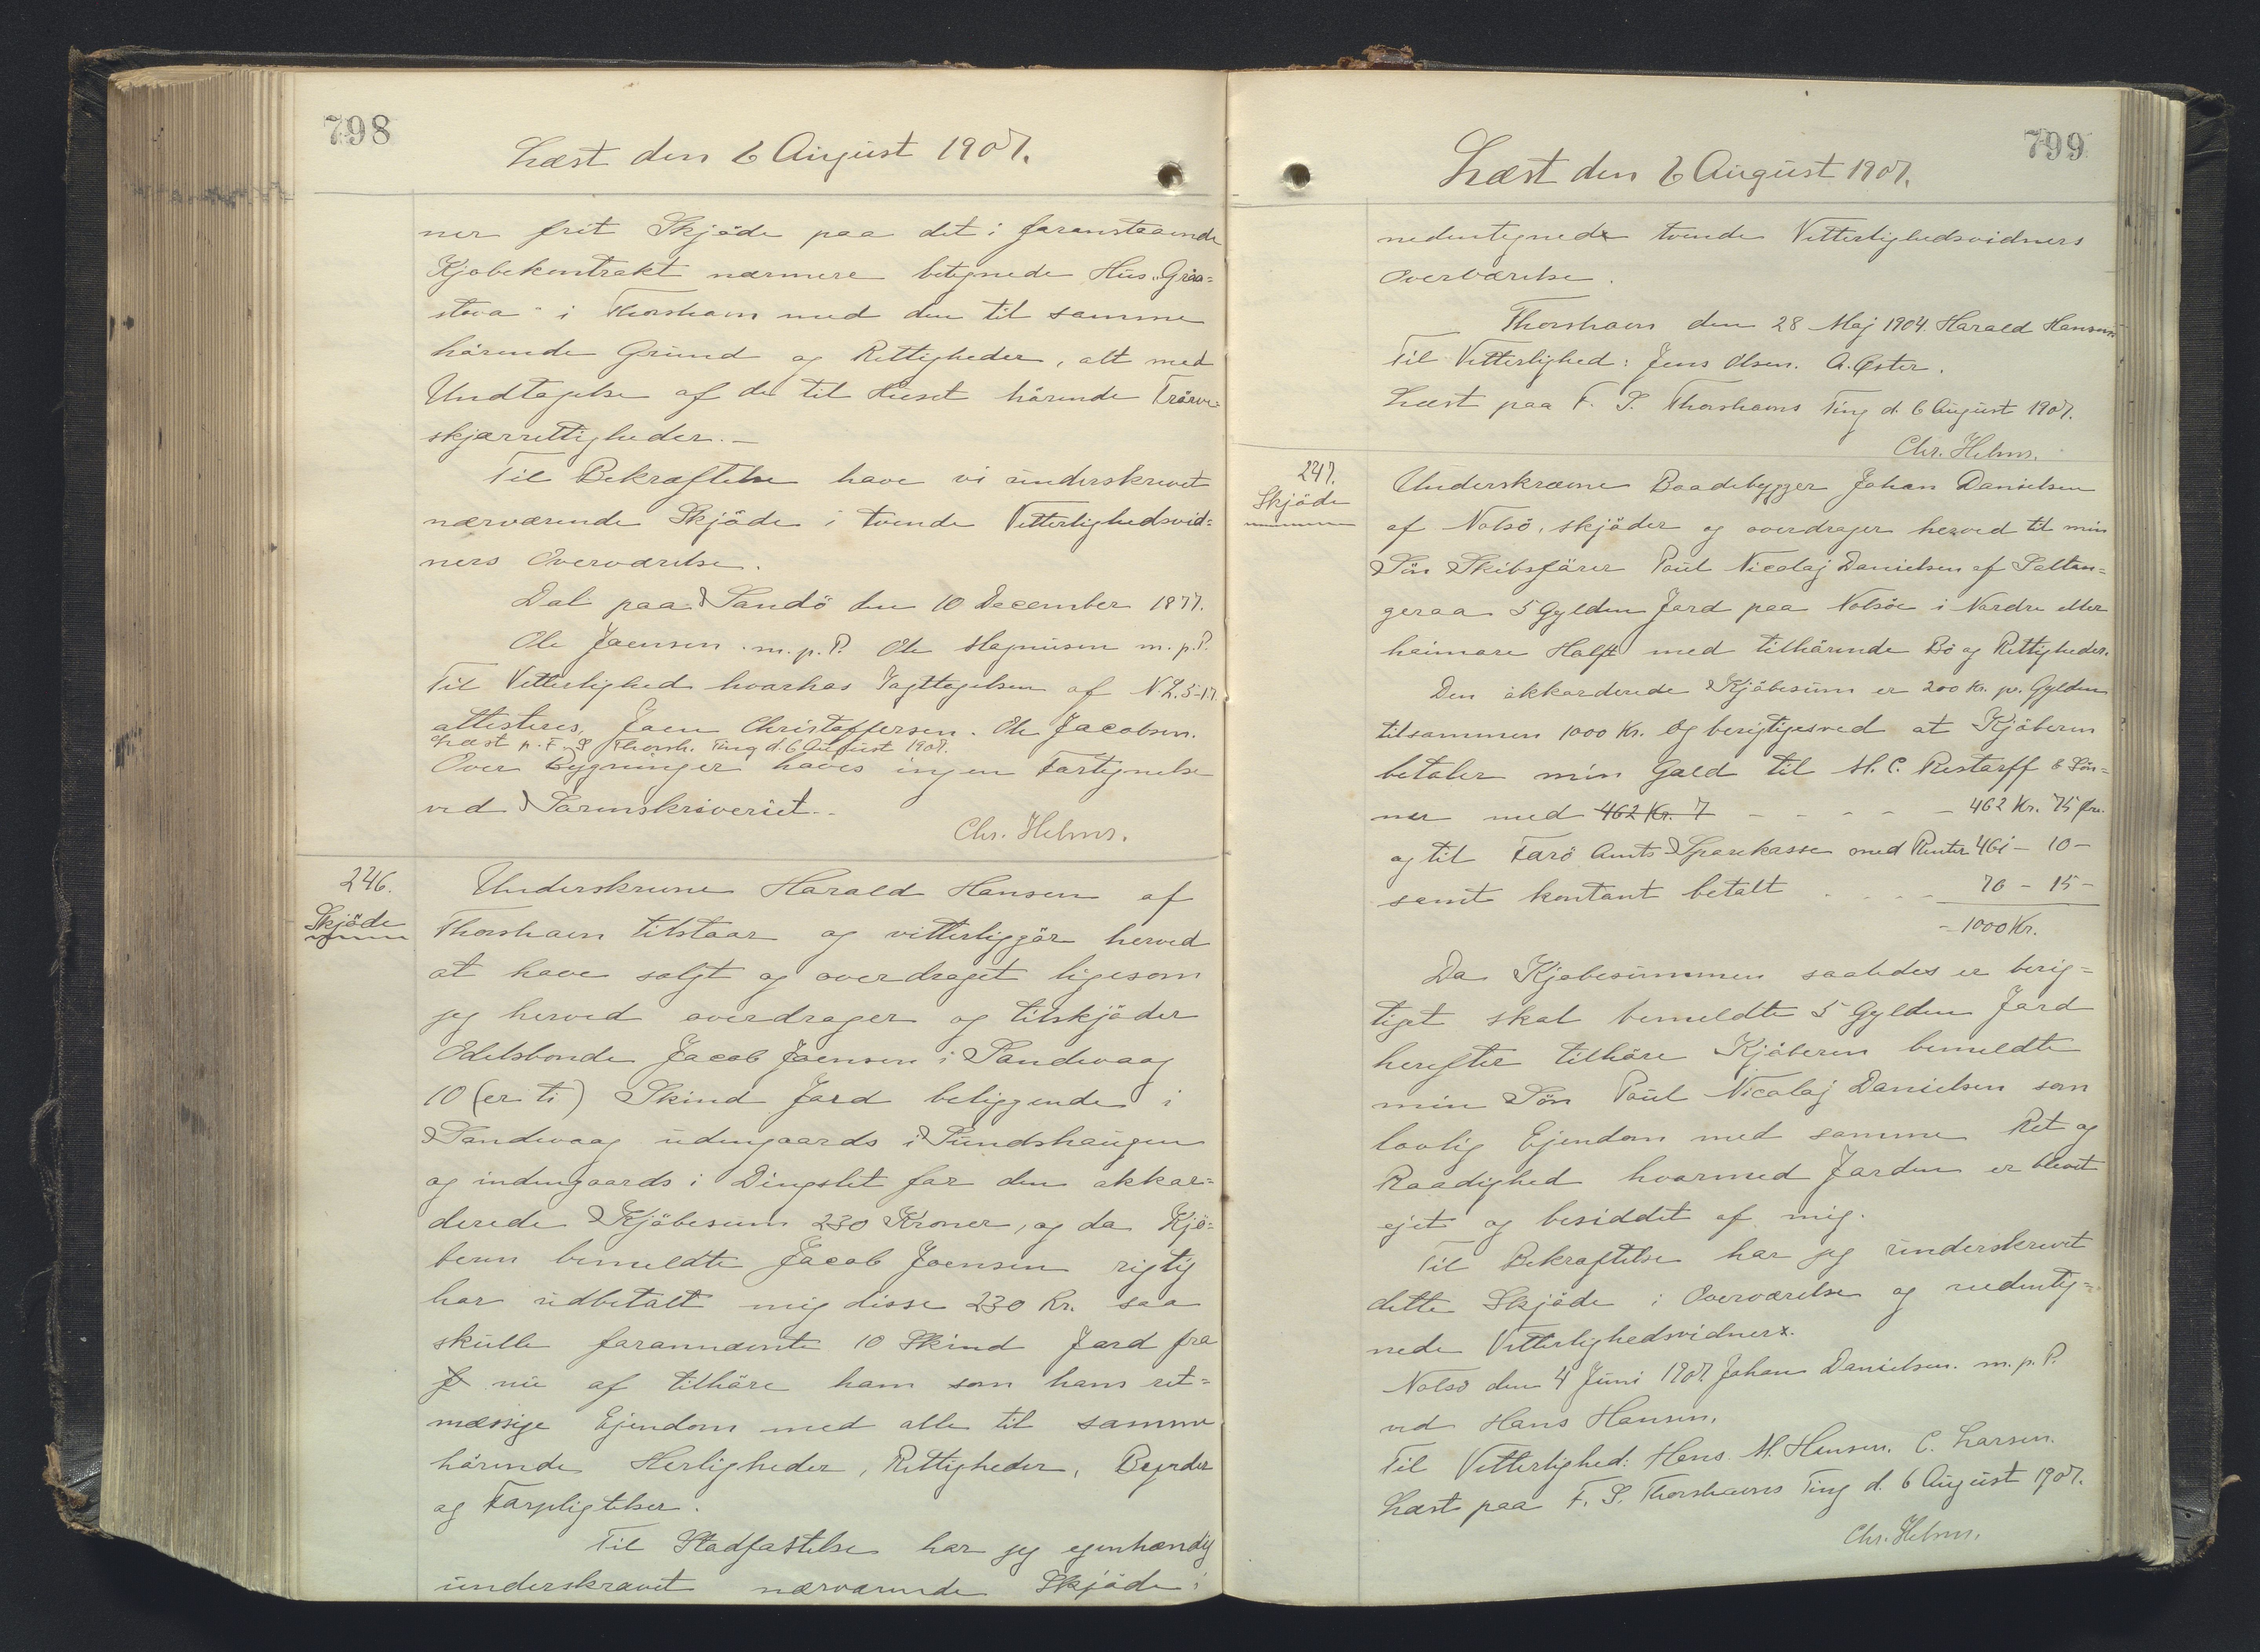 798
Læst den 6 August 1907.
ner frit Skjöde paa det i foranstaaende
Kjöbekontrakt nærmere betegnede Hus "Graa=
stova" i Thorshavn med den til samme
hörende Grund og Rettigheder, alt med
Undtagelse af de til Huset hörende Törve=
skjærrettigheder.–
Til Bekræftelse have vi underskrevet
nærværende Skjöde i tvende Vitterlighedsvid=
ners Overværelse.
Dal paa Sandö den 10 December 1877.
Ole Joensen. m.p.P. Ole Magnusen m.p.P.
Til Vitterlighed hvorhos Iagttagelsen af N.L. 5-1-7
attesteres, Joen Christoffersen. Ole Jacobsen.
Læst p. F. S. Thorsh. Ting d. 6 August 1907.
Over Bygninger haves ingen Fortegnelse
ved Sorenskriveriet.–
Chr. Helms.
246.
Skjöde
Underskrevne Harald Hansen af
Thorshavn tilstaar og vitterliggör herved
at have solgt og overdraget ligesom
jeg herved overdrager og tilskjöder
Odelsbonde Jacob Joensen i Sandevaag
10 (er ti) Skind Jord beliggende i
Sandevaag udengaards i Sundshaugen
og indengaards i Dingslet for den akkor=
derede Kjöbesum 230 Kroner, og da Kjö=
beren bemeldte Jacob Joensen rigtig
har udbetalt mig disse 230 Kr. saa
skulle forannævnte 10 Skind Jord fra
nu af tilhöre ham som hans ret=
mæssige Ejendom med alle til samme
hörende Herligheder, Rettigheder, Byrder
og Forpligtelser.
Til Stadfæstelse har jeg egenhændig
underskrevet nærværende Skjöde i
799
Læst den 6 August 1907.
nedentegnede tvende Vitterlighedsvidners
Overværelse.
Thorshavn den 28 Maj 1904. Harald Hansen.
Til Vitterlighed: Jens Olsen. A. Øster.
Læst paa F. S. Thorshavns Ting d. 6 August 1907.
Chr. Helms.
247.
Skjöde
Underskrevne Baadebygger Johan Danielsen
af Nolsö, skjöder og overdrager herved til min
Sön Skibsförer Poul Nicolaj Danielsen af Saltan=
geraa 5 Gylden Jord paa Nolsöe i Nordre eller
heimare Halft med tilhörende Bö og Rettigheder.
Den akkorderede Kjöbesum er 200 Kr. pr. Gylden
tilsammen 1000 Kr. og berigtiges ved at Kjöberen
betaler min Gæld til M. C. Restorff & Sön=
ner med 462 Kr. 7 – – – – – 462 Kr. 75 Øre.
og til Færö Amts Sparekasse med Renter 461 – 10 –
samt kontant betalt . . . . – 76 – 15 –
– 1000 Kr.
Da Kjöbesummen saaledes er berig=
tiget skal bemeldte 5 Gylden Jord
herefter tilhöre Kjöberen bemeldte
min Sön Poul Nicolaj Danielsen som
lovlig Ejendom med samme Ret og
Raadighed hvormed Jorden er blevet
ejet og besiddet af mig.
Til Bekræftelse har jeg underskrevet
dette Skjöde i Overværelse og nedenteg=
nede Vitterlighedsvidner.
Nolsö den 4 Juni 1907 Johan Danielsen. m.p.P.
ved Hans Hansen.
Til Vitterlighed: Hans M. Hansen. C. Larsen.
Læst paa F. S. Thorshavns Ting d. 6 August 1907.
Chr. Helms.